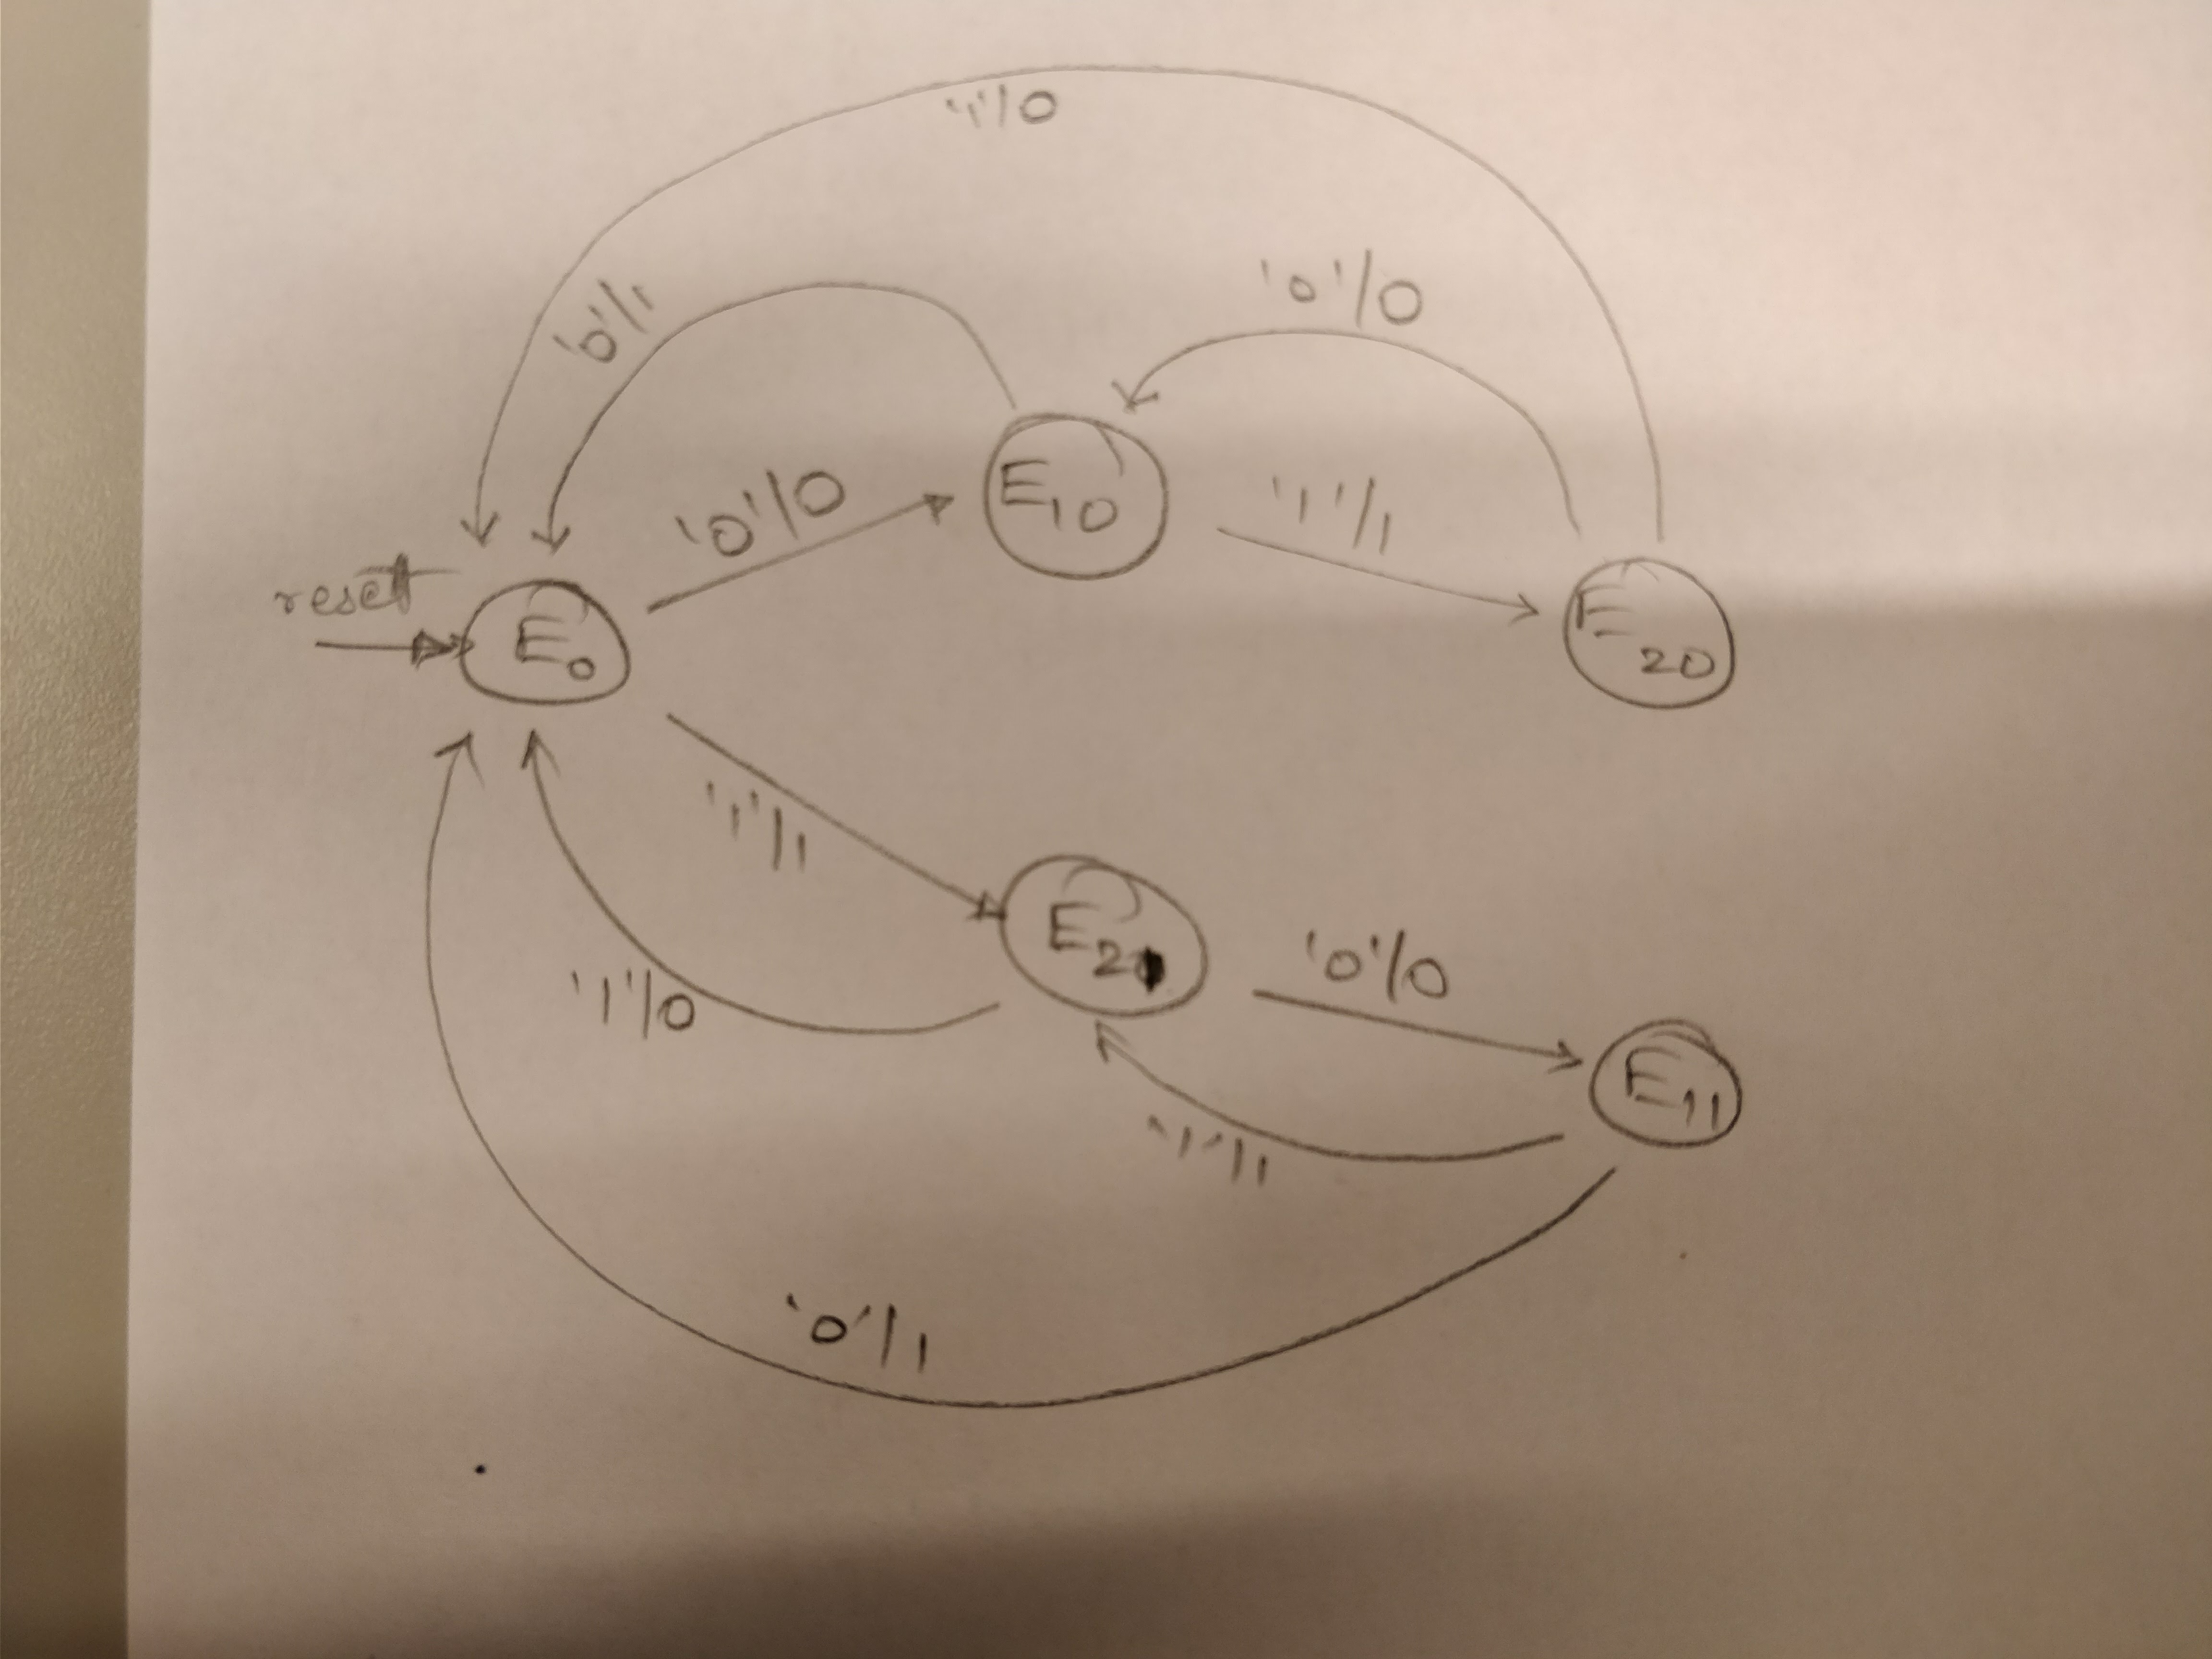 '1'/0
'0'/1
'0'/0
'0'/0
E10
'1'/1
reset
E0
E20
'1'/1
E21
'0'/0
'1'/0
E11
'1'/1
'0'/1